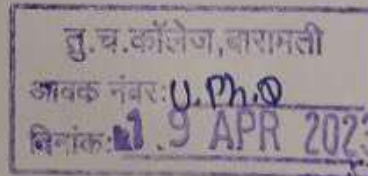 तु.च.कॉलेज,बारामती
आवक नंबर:
दिनांक: 19 APR 2023